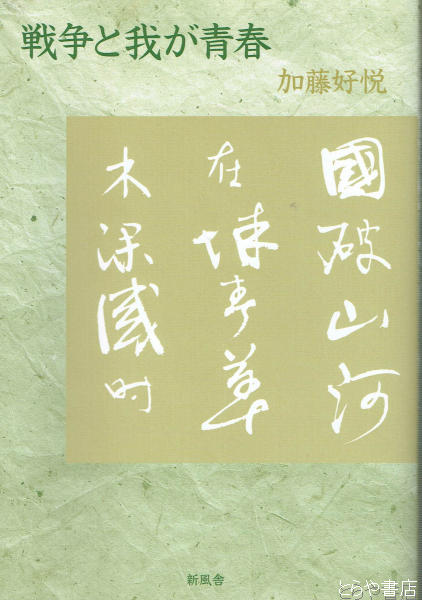 戦争と我が青春
加藤好悦
國破山河
在城春草
木深感时
新風舎
とらや書店